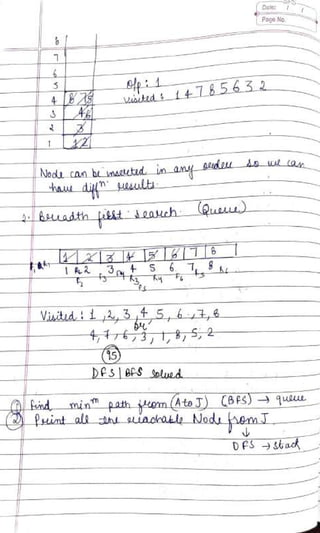 Date: / /
Page No.
8
7
6
5
4 8 7 5
3 4 6
2 3
1 1 2
o/p : 1
visited : 1 4 7 8 5 6 3 2
Node can be inserted in any order so we can
have diffⁿ results.
2. Breadth first search (Queue)
1 2 3 4 5 6 7 8
1 2 3 4 5 6 7 8
Visited : 1, 2, 3, 4, 5, 6, 7, 8
or
4, 7, 6, 3, 1, 8, 5, 2
95
DFS | BFS solved
① Find minᵐ path from (A to J) (BFS) → queue
② Print all the reachable Node from J.
↓
DFS → stack